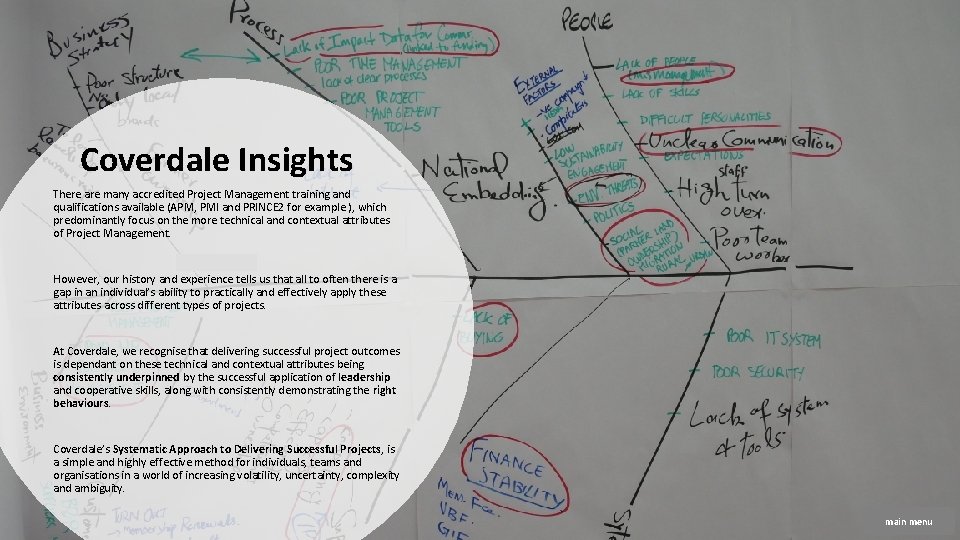 Business
Strategy
Process
PEOPLE
Lack of Impact Data for Comms
(linked to funding)
POOR TIME MANAGEMENT
lack of clear processes
POOR PROJECT
MANAGEMENT
TOOLS
Poor Structure
local
brands
EXTERNAL
FACTORS
LACK OF PEOPLE
LACK OF SKILLS
DIFFICULT PERSONALITIES
Unclear Communication
EXPECTATIONS
LOW
SUSTAINABILITY
ENGAGEMENT
THREATS
POLITICS
SOCIAL
OWNERSHIP)
MIGRATION
RURAL
staff
High turn
over.
Poor team
National
Embedding.
Coverdale Insights
There are many accredited Project Management training and
qualifications available (APM, PMI and PRINCE2 for example), which
predominantly focus on the more technical and contextual attributes
of Project Management.
However, our history and experience tells us that all to often there is a
gap in an individual's ability to practically and effectively apply these
attributes across different types of projects.
At Coverdale, we recognise that delivering successful project outcomes
is dependant on these technical and contextual attributes being
consistently underpinned by the successful application of leadership
and cooperative skills, along with consistently demonstrating the right
behaviours.
Coverdale's Systematic Approach to Delivering Successful Projects, is
a simple and highly effective method for individuals, teams and
organisations in a world of increasing volatility, uncertainty, complexity
and ambiguity.
MANAGEMENT
LACK OF
POOR IT SYSTEM
POOR SECURITY
Lack of system
& tools
FINANCE
STABILITY
Mem. Fee.
VBF.
GIF
TURN OUT
Membership Renewals.
Business
main menu